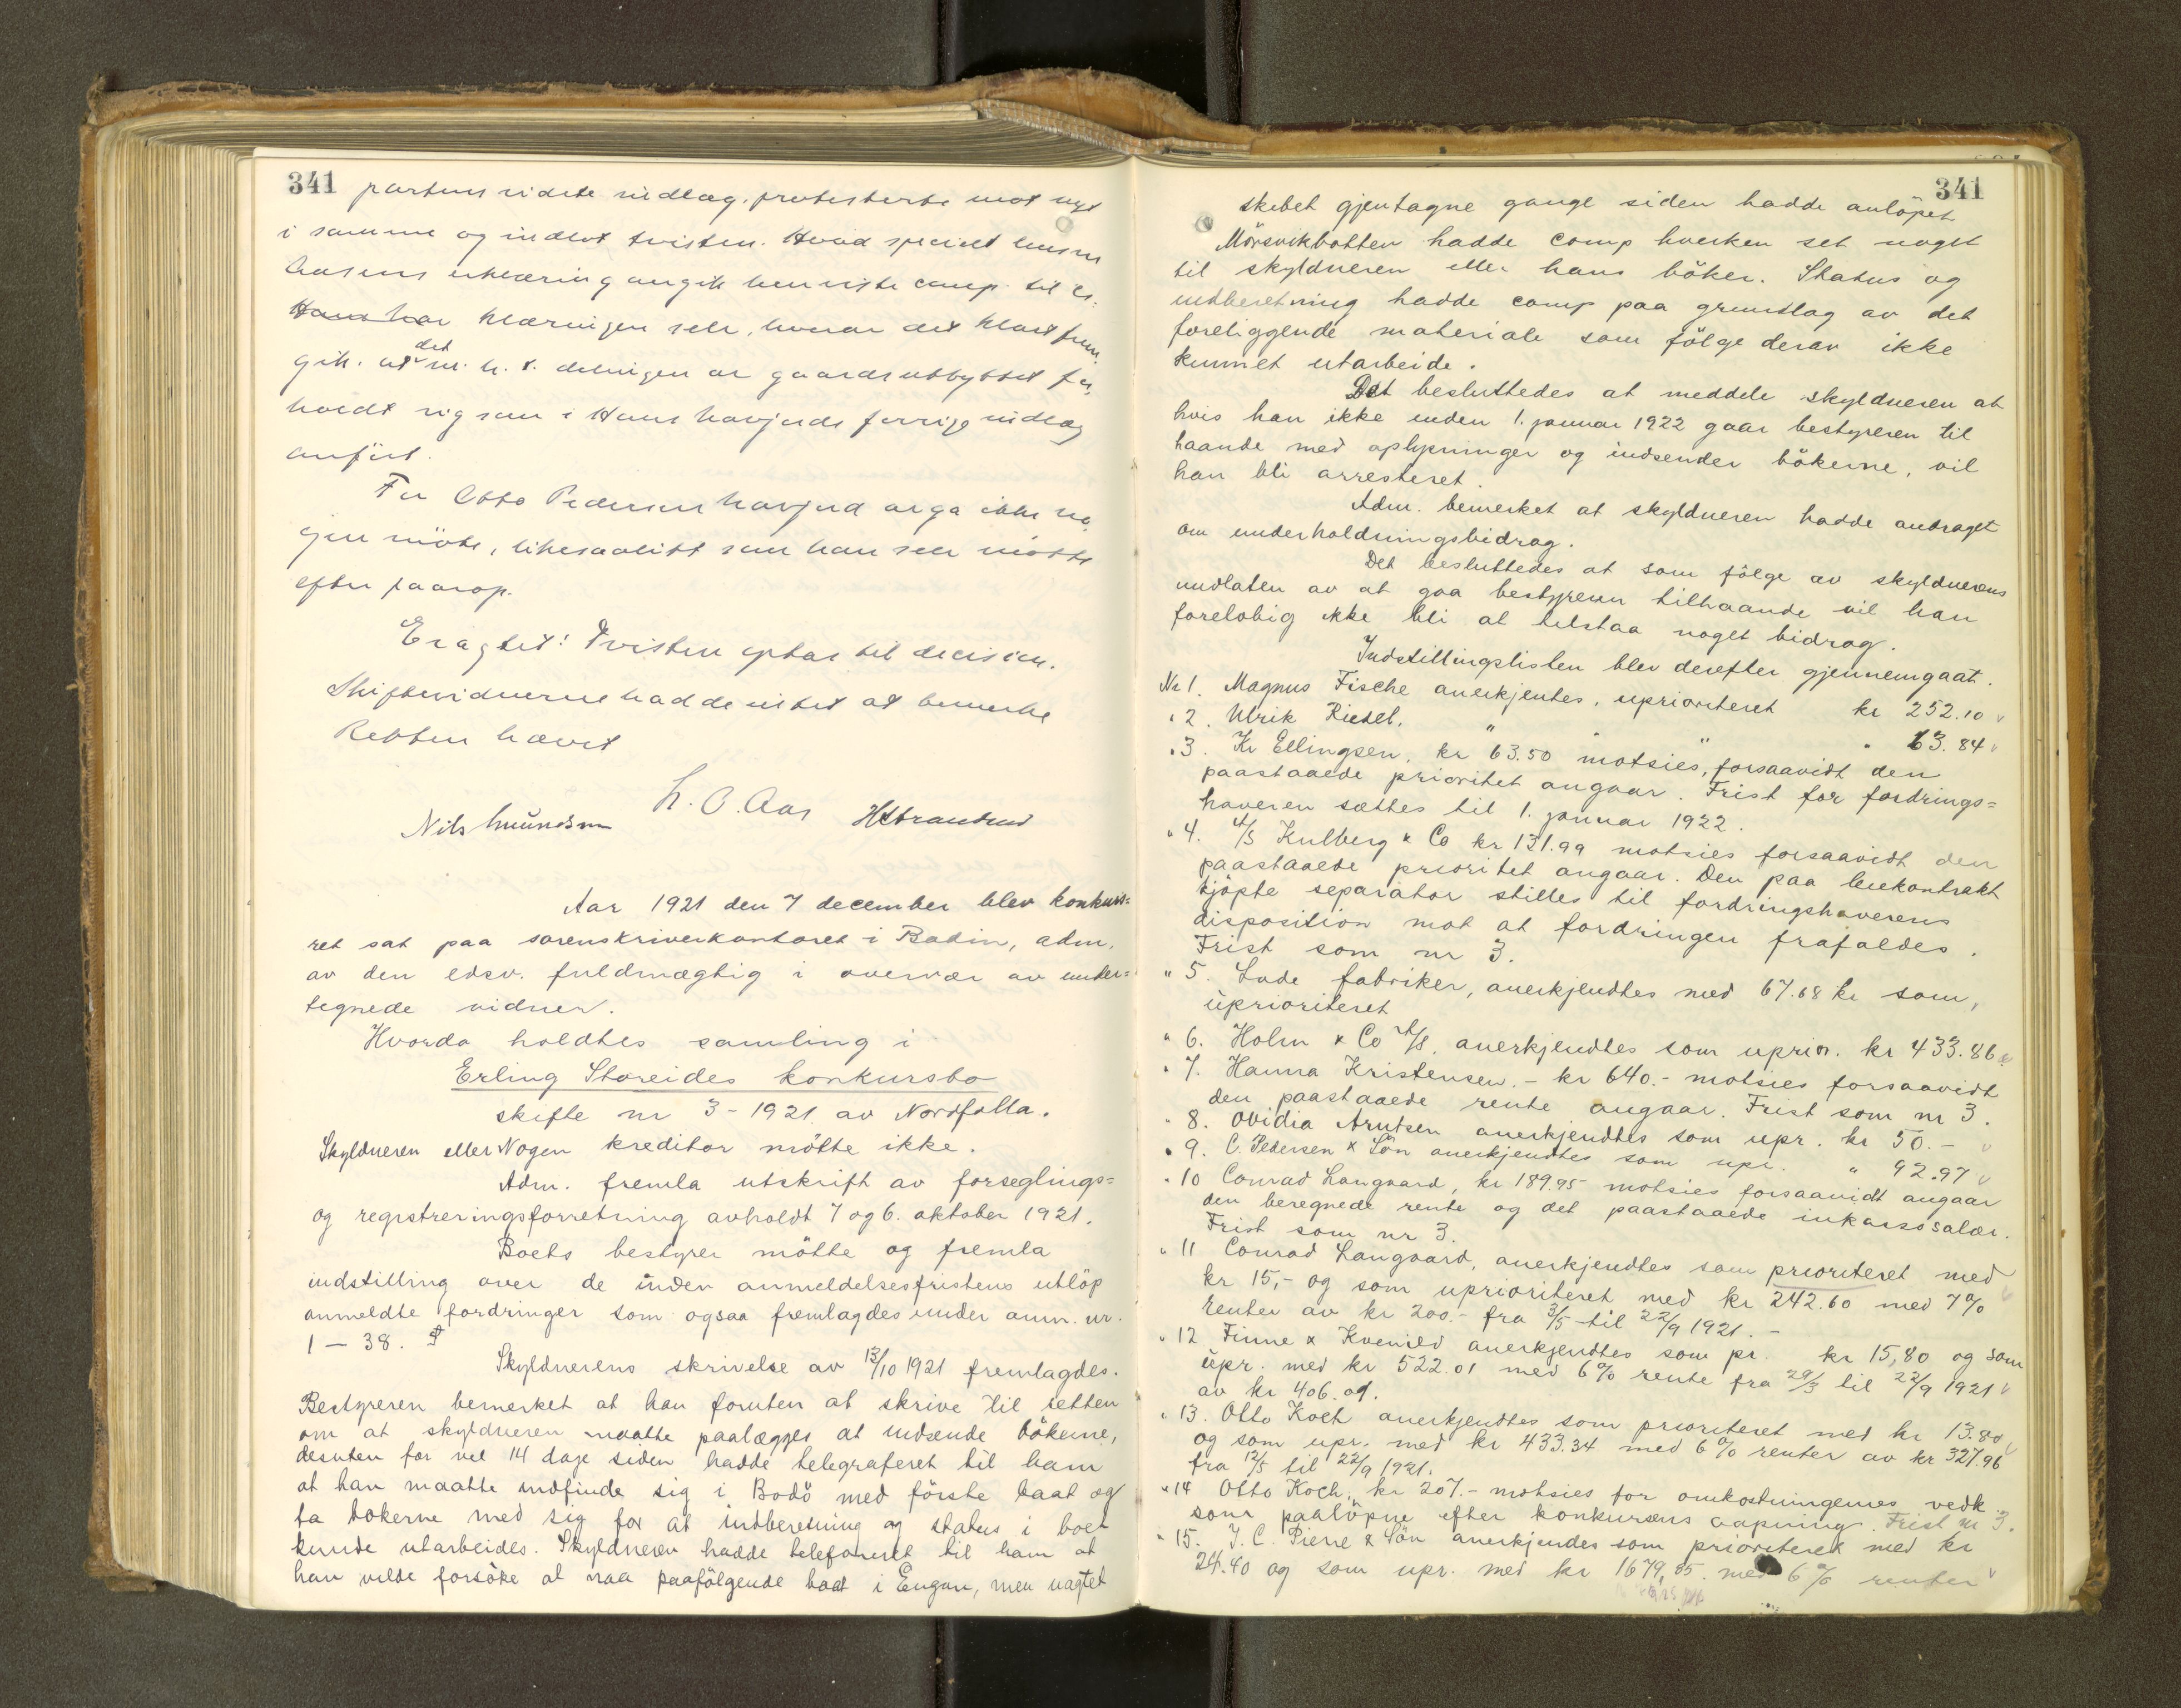 341
partens sidste indlæg, protesterte mot nyt
i samme og indlot tvisten. Hvad specielt lensm
Aasens erklæring angik henviste comp. til er-
Hans har klæringen selv, hvorav det klart frem-
gik, at det m. h. t. delingen av gaardsutbyttet for-
holdt sig som i Hans Havjords forrige indlæg
anført.
For Otto Pedersen Havjord avga ikke no-
gen møte, likesaalitt som han selv møtte
efter paarop.
Eragtet: Tvisten optas til decision.
Skiftevidnerne hadde intet at bemerke
Retten hævet
L. O. Aas
Nils
Aar 1921 den 7 december blev konkurs=
ret sat paa sorenskriverkontoret i Bodin, adm.
av den edsv. fuldmægtig i overvær av under=
tegnede vidner.
Hvorda holdtes samling i
Erling Storeides konkursbo
skifte nr 3-1921 av Nordfolla.
Skyldneren eller Nogen kreditor mötte ikke.
Adm. fremla utskrift av forseglings=
og registreringsforretning avholdt 7 og 6. oktober 1921.
Boets bestyrer mötte og fremla
indstilling over de inden anmeldelsesfristens utlöp
anmeldte fordringer som ogsaa fremlagdes under anm. nr.
1 — 38.
Skyldnerens skrivelse av 13/10 1921 fremlagdes.
Bestyreren bemerket at han foruten at skrive til retten
om at skyldneren maatte paalægges at indsende bökerne,
desuten for vel 14 dage siden hadde telegraferet til ham
at han maatte indfinde sig i Bodö med förste baat og
ta bökerne med sig for at indberetning og status i boet
kunde utarbeides. Skyldneren hadde telefoneret til ham at
han vilde forsöke at naa paafölgende baat i Engan, men uagtet
341
skibet gjentagne gange siden hadde anlöpet
Mörsvikbotten hadde comp hverken set noget
til skyldneren eller hans böker. Status og
indberetning hadde comp paa grundlag av det
foreliggende materiale som fölge derav ikke
kunnet utarbeide.
Det besluttedes at meddele skyldneren at
hvis han ikke inden 1. januar 1922 gaar bestyreren til
haande med oplysninger og indsender bökerne, vil
han bli arresteret.
Adm. bemerket at skyldneren hadde andraget
om underholdningsbidrag.
Det besluttedes at som fölge av skyldnerens
undlaten av at gaa bestyreren tilhaande vil han
forelobig ikke bli at tilstaa noget bidrag.
Indstillingslisten blev derefter gjennemgaat.
Nr 1. Magnus Fische anerkjentes, uprioriteret kr 252.10
" 2. Ulrik Riedel. " " " 63.84
" 3. Kr Ellingsen, kr 63.50 motsies, forsaavidt den
paastaaede prioritet angaar. Frist for fordrings=
haveren sættes til 1. januar 1922.
" 4. A/S Kulberg & Co kr 131.99 motsies forsaavidt den
paastaaede prioritet angaar. Den paa leiekontrakt
kjöpte separator stilles til fordringshaverens
disposition mot at fordringen frafaldes.
Frist som nr 3.
" 5. Lade fabriker, anerkjendtes med 67.68 kr som,
uprioriteret
" 6. Holm & Co A/S, anerkjendtes som uprior. kr 433.86
" 7. Hanna Kristensen. - kr 640.- motsies forsaavidt
den paastaaede rente angaar. Frist som nr 3.
" 8. Ovidia Arntsen anerkjendtes som upr. kr 50.-
" 9. C. Pedersen & Sön anerkjendtes som upr. " 92.97
" 10 Conrad Langaard, kr 189.95 motsies forsaavidt angaar
den beregnede rente og det paastaaede inkassosalær.
Frist som nr 3.
" 11 Conrad Langaard, anerkjendtes som prioriteret med
kr 15,- og som uprioriteret med kr 242.60 med 7%
renter av kr 200.- fra 3/5 til 22/9 1921.-
" 12 Finne & Kvenild anerkjendtes som pr. kr 15,80 og som
upr. med kr 522.01 med 6% rente fra 29/3 til 22/9 1921
av kr 406.01.
" 13. Otto Koch anerkjendtes som prioriteret med kr 13.80
og som upr. med kr 433.34 med 6% renter av kr 327.96
fra 12/5 til 22/9 1921.
" 14 Otto Koch, kr 207.- motsies for omkostningernes vedk.
som paalöpne efter konkursens aapning. Frist nr 3.
" 15. J. C. Piene & Sön anerkjendes som prioriteret med kr
24.40 og som upr. med kr 1679,35. med 6% renter